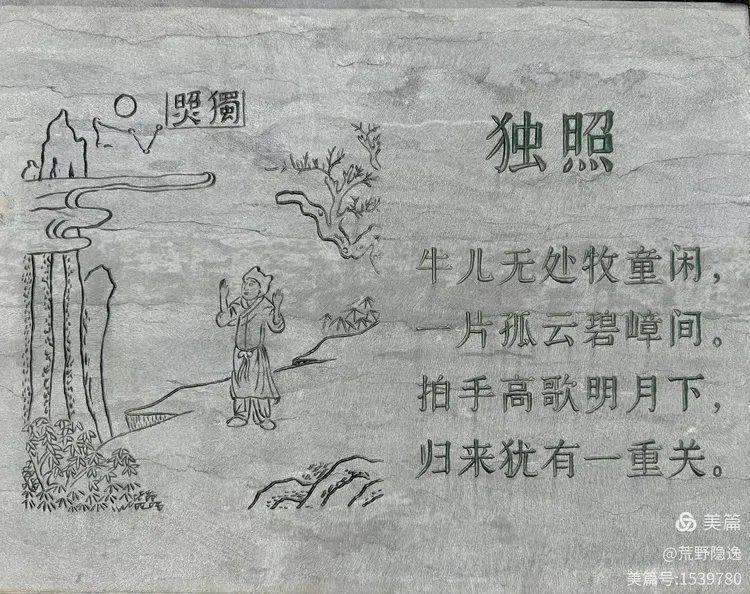 獨照
独照
牛儿无处牧童闲，
一片孤云碧嶂间。
拍手高歌明月下，
归来犹有一重关。
美篇
@荒野隐逸
美篇号:1539780